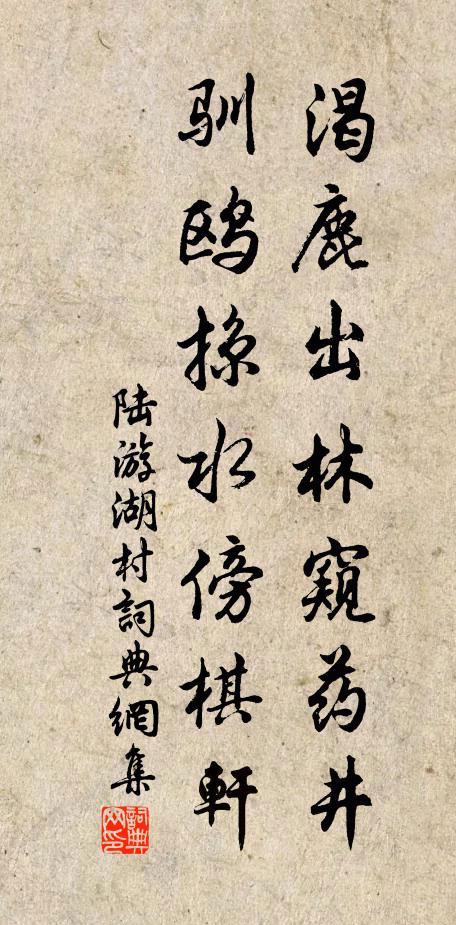 渴鹿出林窥药井
驯鸥掠水傍棋軒
陆游湖村詞典網集
詞典网印